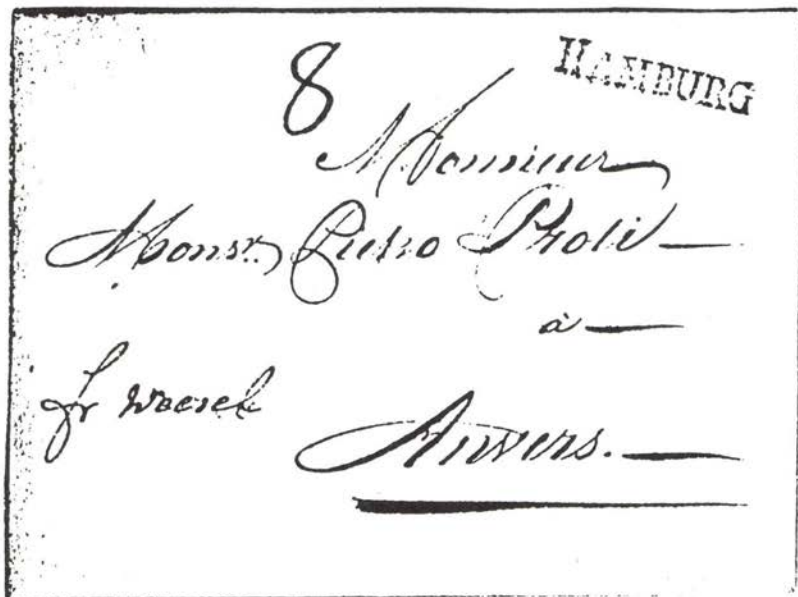 HAMBURG
8
Monsieur
Monsr. Pietro Proli
à
fr Weesel
Anvers.